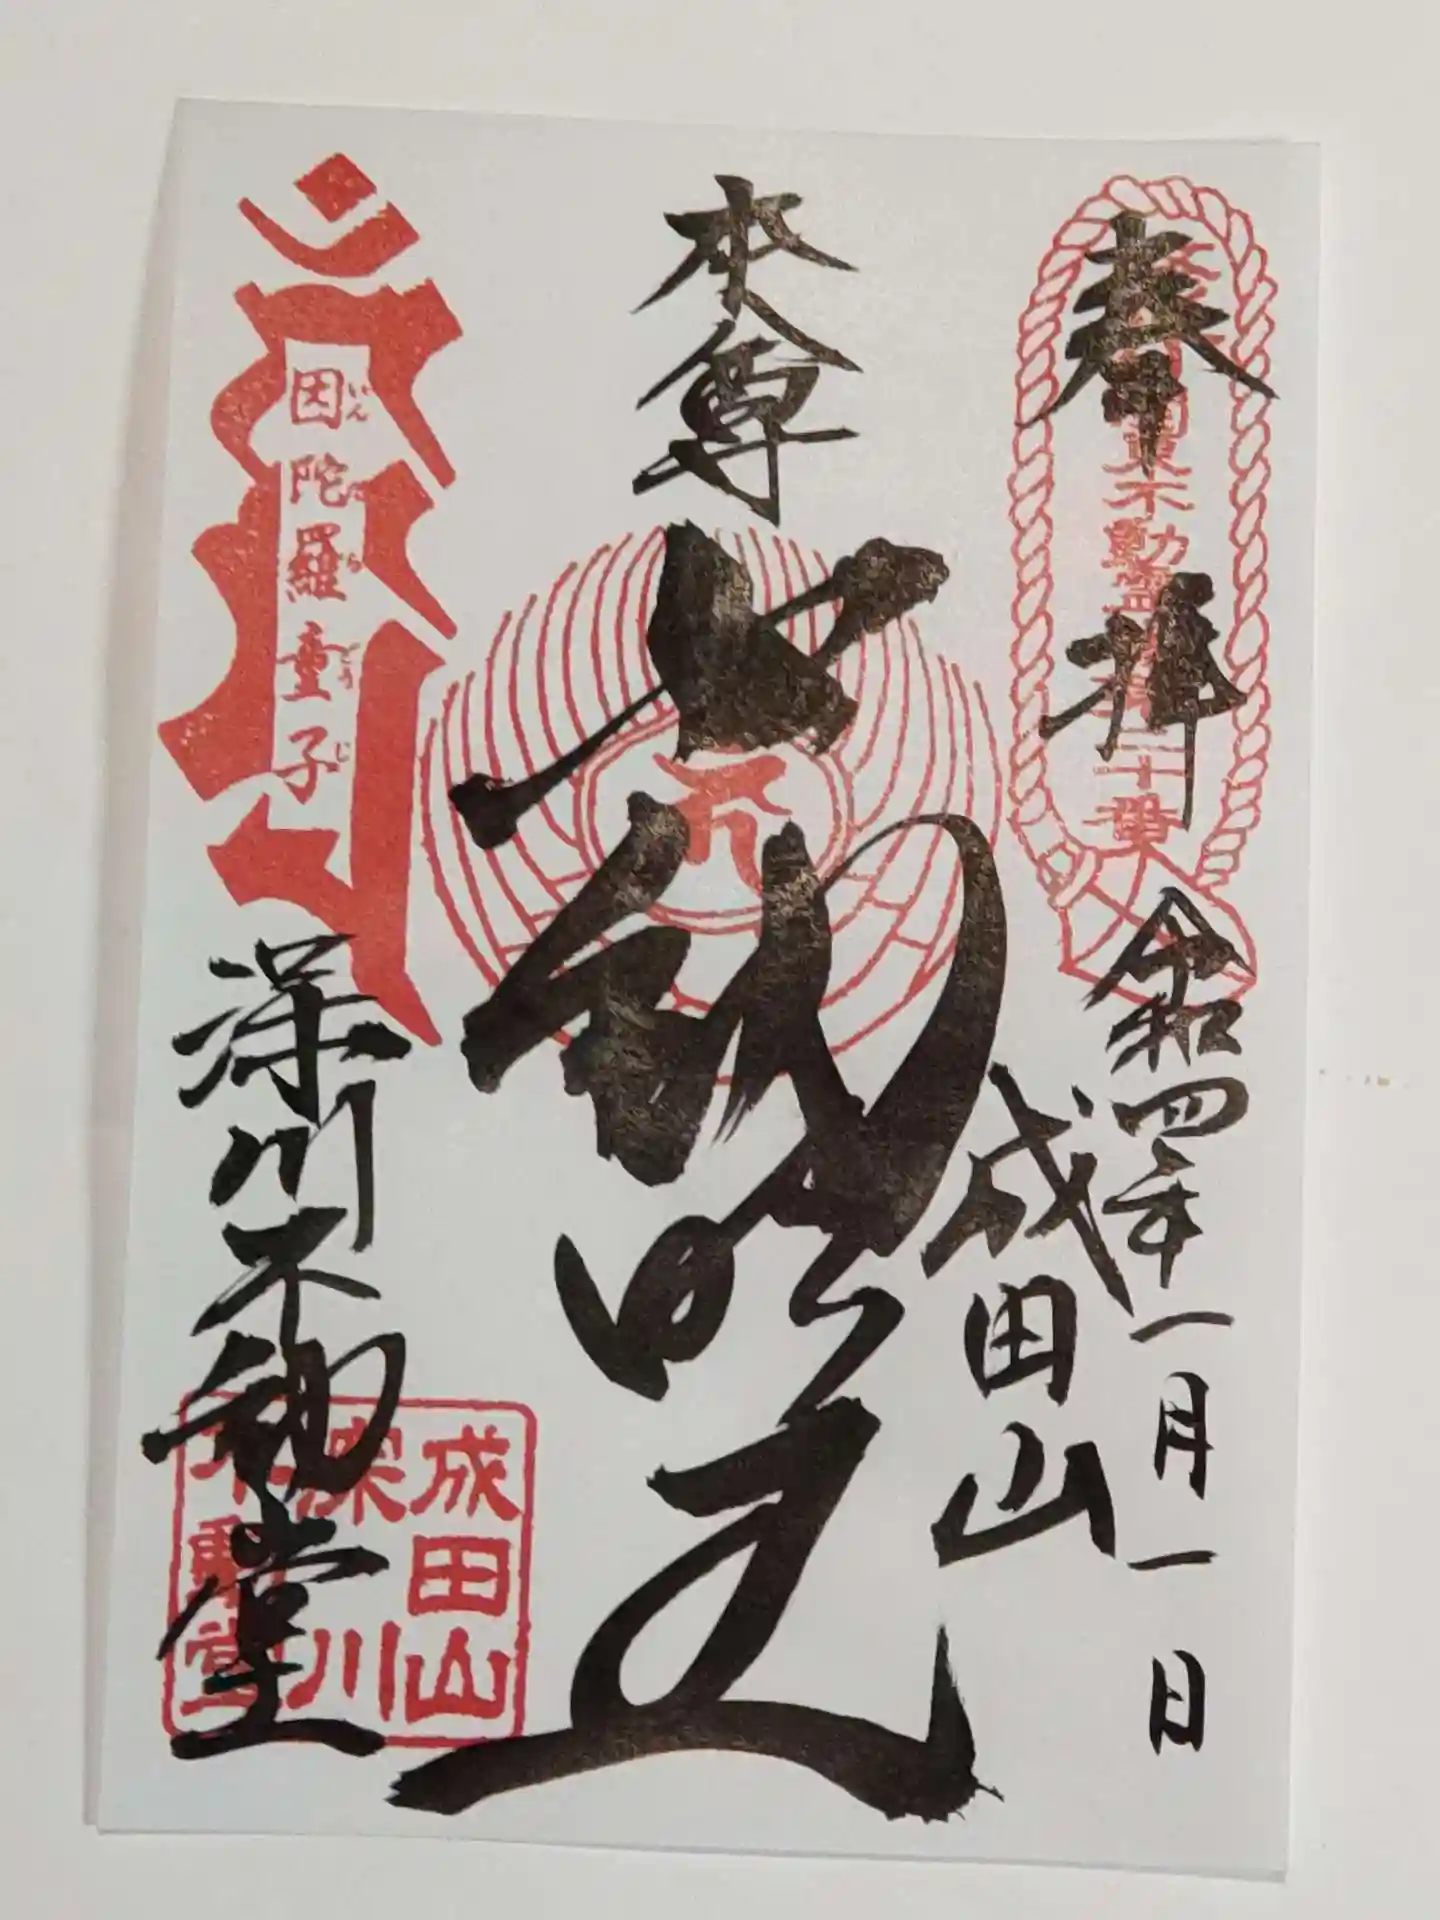 奉拝
令和四年一月一日
成田山
関東不動霊場第二十番
本尊
不動明王
因陀羅童子
いんだらどうじ
深川不動堂
成田山
深川
不動堂